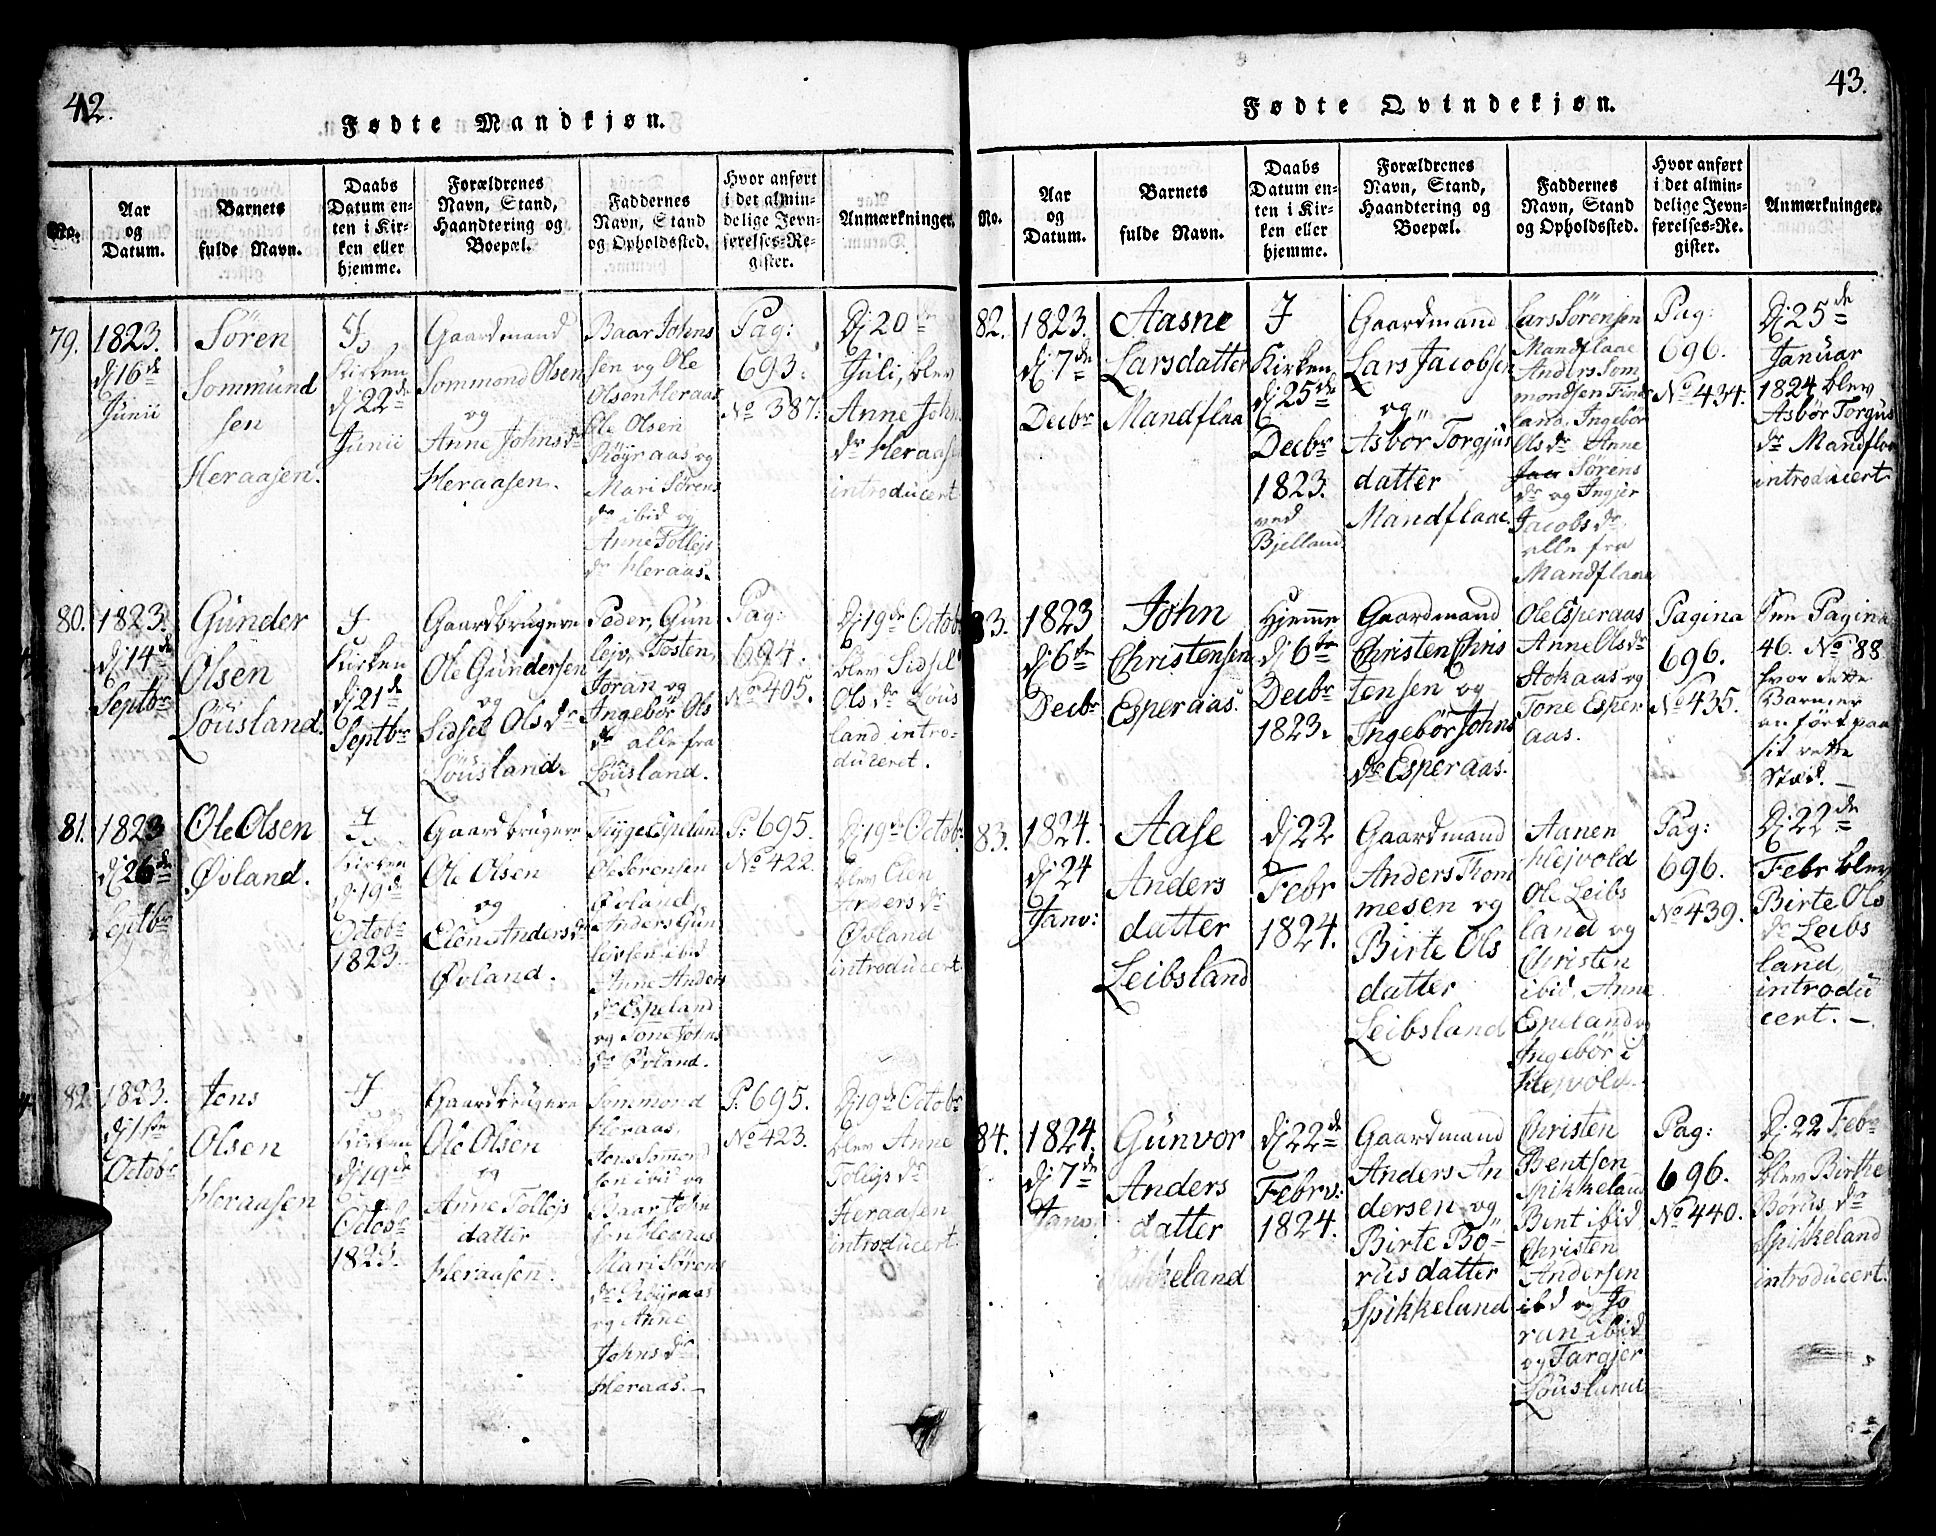 42.
Fødte Mandkjøn.
No.
Aar
og
Datum.
Barnets
fulde Navn.
Daabs
Datum en-
ten i Kir-
ken eller
hjemme.
Forældrenes
Navn, Stand,
Haandtering og
Boepæl.
Faddernes
Navn, Stand
og Opholdssted.
Hvor anført
i det almin-
delige Jevn-
førelses-Re-
gister.
Anmærkninger.
79.
1823.
dj 16de
Junii
Sören
Sommund
sen
Heraasen.
I
Kirken
dj 22de
Junii
Gaardmand
Sommond Olsen
og
Anne Johnsdr
Heraasen.
Baar Johns
sen og Ole
Olsen Heraas
Ole Olsen
Röyraas og
Mari Sörens
dr ibid og
Anne Tollejs
dr Heraas.
Pag:
693.
No 387.
Dj 20de
Juli, blev
Anne Johns
dr Heraasen
introducert
80.
1823.
dj 14de
Septbr
Gunder
Olsen
Löusland.
I
Kirken
dj 21de
Septbr
Gaardbrugere
Ole Gundersen
og
Sidsel Olsdr
Löusland.
Peder, Gun
lejv, Tosten,
Joran og
Ingebör Ols
dr alle fra
Löusland.
Pag:
694.
No 405.
Dj 19de Octob.
blev Sidsel
Ols dr Lous
land intro-
duceret.
81.
1823
dj 26de
Septbr
Ole Olsen
Øvland.
I
Kirken
dj 19de
Octobr
1823.
Gaardbrugere
Ole Olsen
og
Elen Andersdr
Øvland.
Espeland
Ole Sørensen
Øvland
Anders Gun
lejvsen ibid
Anne Anders
dr Espeland
og Tone Johns
dr Øvland.
P: 695.
No 422.
Dj 19de Octob.
blev Elen
Anders dr
Øvland
introducert
82.
1823.
dj 1ste
Octobr
Jens
Olsen
Heraasen
I
Kirken
dj 19de
Octobr
1823.
Gaardbrugere
Ole Olsen
og
Anne Tollejs
datter
Heraasen.
Sommond
Heraas,
Jens Somond
sen ibid og
Baar John
sen Heraas
Mari Sörens
dr Röyraas
og Anne
Johns dr
Heraas.
P: 695.
No 423.
Dj 19de Octobr
blev Anne
Tollejs dr
Heraasen
introducert
43.
Fødte Qvindekjøn.
No.
Aar
og
Datum.
Barnets
fulde Navn.
Daabs
Datum en-
ten i Kir-
ken eller
hjemme.
Forældrenes
Navn, Stand,
Haandtering og
Boepæl.
Faddernes
Navn, Stand
og Opholdssted.
Hvor anført
i det almin-
delige Jevn-
førelses-Re-
gister.
Anmærkninger.
82.
1823.
dj 7de
Decbr
Aasne
Larsdatter
Mandflaa
I
Kirken
dj 25de
Decbr
1823.
ved
Bjelland
Gaardmand
Lars Jacobsen
og
Asbör Torgjus
datter
Mandflaae.
Lars Sörensen
Mandflaae
Anders Som
mondsen Finds
land, Ingebör
Ols dr Anne
Sörens
dr og Ingjer
Jacobs dr
alle fra
Mandflaae
Pag:
696.
No 434.
Dj 25de
Januar
1824 blev
Asbör Torgus
dr Mandflaa
introducert
83.
1823
dj 6te
Decbr
John
Christensen
Esperaas.
Hjemme
dj 6te
Decbr
1823.
Gaardmand
Christen Chris
tensen og
Ingebör Johns
dr Esperaas.
Ole Esperaas
Anne Olsdr
Stokaas og
Tone Esper
aas.
Pagina
696.
No 435.
See Pagina
46. No 88
hvor dette
Barn er
anført paa
sit rette
Stæd. —
83.
1824.
dj 24
Janv:
Aase
Anders
datter
Leibsland
dj 22
Febr
1824.
Gaardmand
Anders Tom
mesen og
Birte Ols
datter
Leibsland
Aanen
Hejvold
Ole Leibs
land og
Christen
ibid, Anne
Espeland og
Ingebör i
Hejvold.
Pag:
696.
No 439.
Dj 22de
Febr blev
Birte Ols
dr Leibs
land,
introdu
cert. —
84.
1824.
dj 7de
Janv.
Gunvor
Anders
datter
Spikkeland
dj 22de
Febrv:
1824.
Gaardmand
Anders An
dersen og
Birte Bo-
rus datter
Spikkeland
Christen
Bentsen
Spikkeland
Bent ibid
Christen
Andersen
ibd og Jo
ran ibid
og Targjer
Löusland
Pag:
696.
No 440.
Dj 22 Febr
blev Birthe
Börus dr
Spikkeland
introducert.